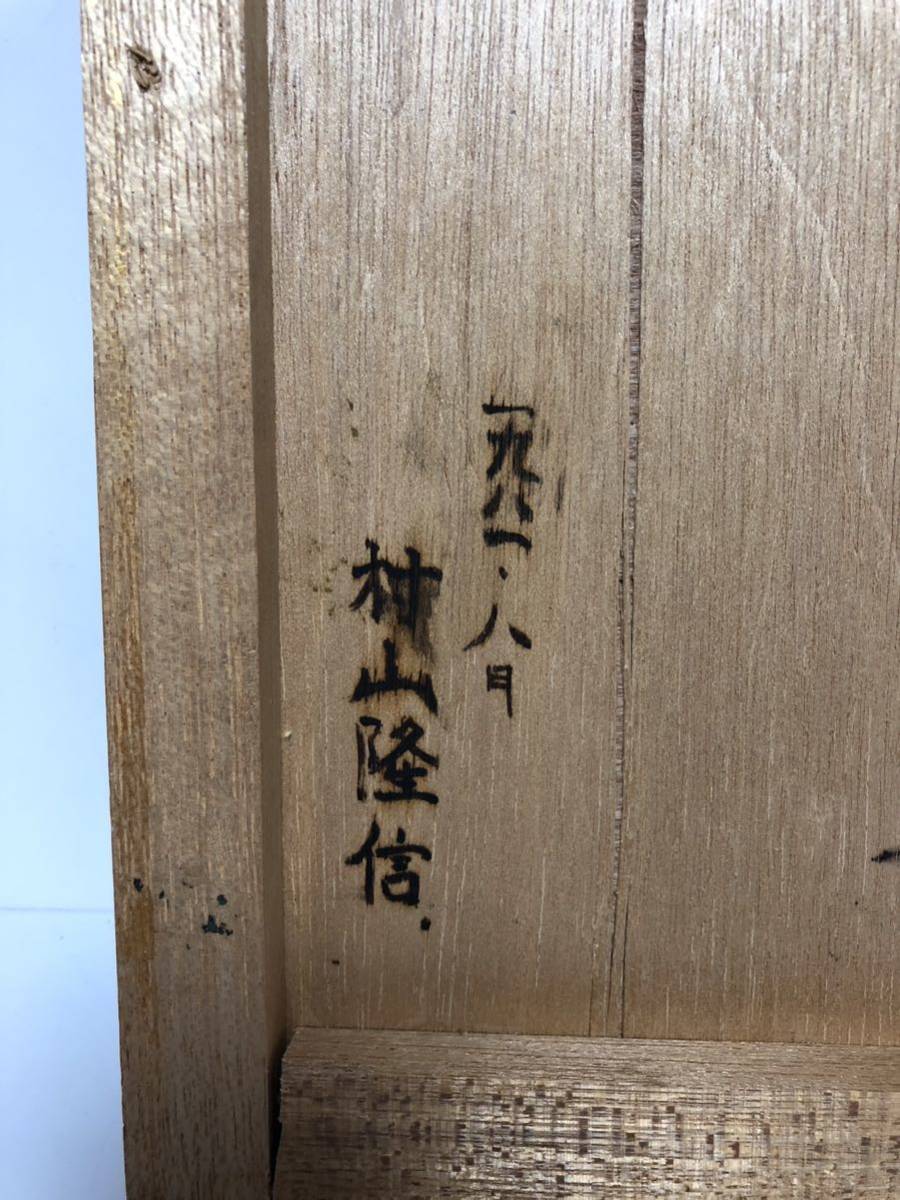 一九八一、八月
村山隆信.